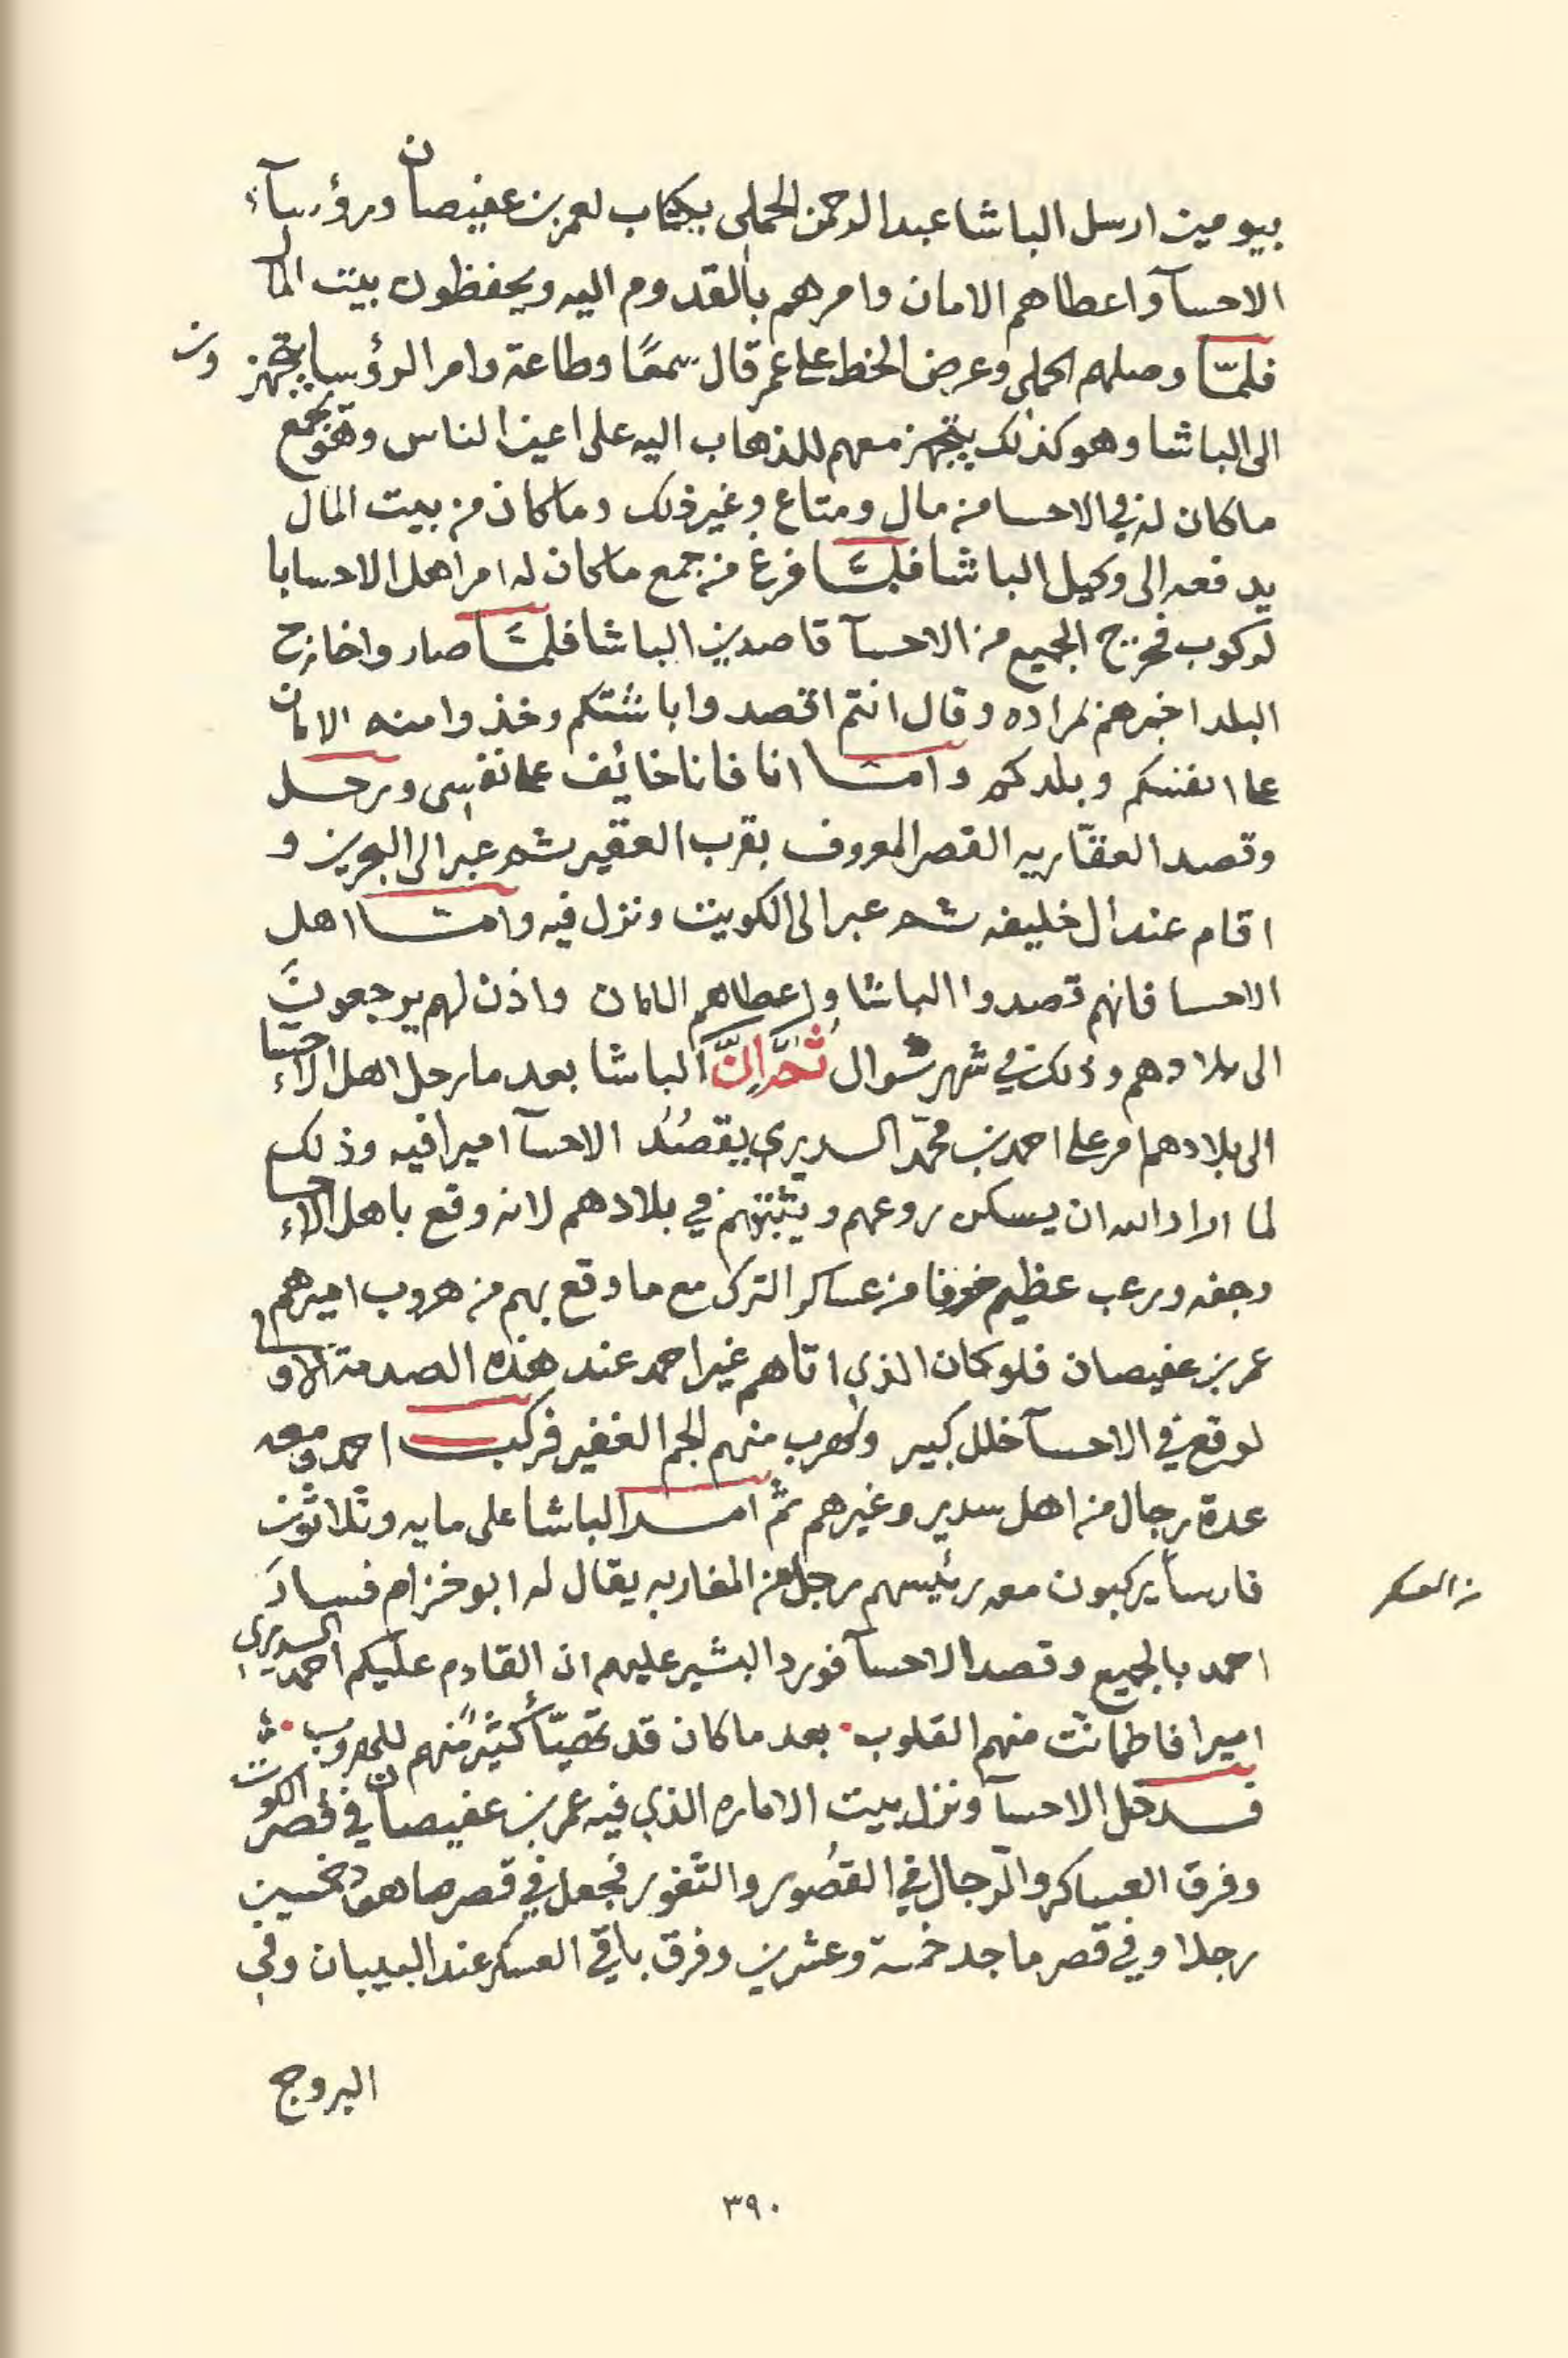 بيومين ارسل الباشا عبدالرحمن الحملي بكتاب لعمر بن عفيصان ورؤسآء
الاحسآ واعطاهم الامان وامرهم بالقدوم اليه ويحفظون بيت المال
فلمّا وصلهم الحملي وعرض الخط على عمر قال سمعًا وطاعة وامر الرؤسا يتجهزون
الى الباشا وهو كذلك يتجهز معهم للذهاب اليه على اعين الناس وهو يجمع
ماكان له في الاحسا من مال ومتاع وغير ذلك وماكان من بيت المال
يدفعه الى وكيل الباشا فلمّا فرغ من جمع ماكان له امر اهل الاحسا با
لركوب فخرج الجميع من الاحسآ قاصدين الباشا فلمّا صاروا خارج
البلد اخبرهم بمراده وقال انتم اقصدوا باشتكم وخذوا منه الامان
على انفسكم وبلدكم وامّا انا فانا خائف على نفسي ورحل
وقصد العقّاريه القصر المعروف بقرب العقير ثم عبر الى البحرين و
اقام عند ال خليفه ثم عبر الى الكويت ونزل فيه وامّا اهل
الاحسا فانهم قصدوا الباشا واعطاهم الامان واذن لهم يرجعونَ
الى بلادهم وذلك في شهر شوال ثُمَّ اِنَّ الباشا بعد ما رحل اهل الاحساء
الى بلادهم امر على احمد بن محمّد السديري يقصُدُ الاحسآ اميرا فيه وذلك
لما اراد الله ان يسكن روعهم ويثبتهم في بلادهم لانه وقع باهل الاحساء
رجفه ورعب عظيم خوفا من عساكر الترك مع ما وقع بهم من هروب اميرهم
عمر بن عفيصان فلو كان الذي اتاهم غير احمد عند هذه الصدمة الاولى
لوقع في الاحسآ خلل كبير ولهرب منهم الجم الغفير فركب احمد ومعه
عدة رجال من اهل سدير وغيرهم ثمّ امر الباشا على مايه وثلاثون
فارساً يركبون معه رئيسهم رجل من المغاربه يقال له ابو خزام فسارَ
من العسكر
احمد بالجميع وقصد الاحسآ فورد البشير عليهم ان القادم عليكم احمد السديري
اميرا فاطمانّت منهم القلوب. بعد ماكان قد تهيّأ كثيرٌ منهم للهروب. ثم
دخل الاحسآ ونزل بيت الاماره الذي فيه عمر بن عفيصان في قصر الكوت
وفرق العساكر والرّجال في القصُور والثّغور فجعل في قصر صاهود خمسين
رجلا وفي قصر ماجد خمسة وعشرين وفرق باقي العسكر عند البيبان وفي
البروج
٣٩٠